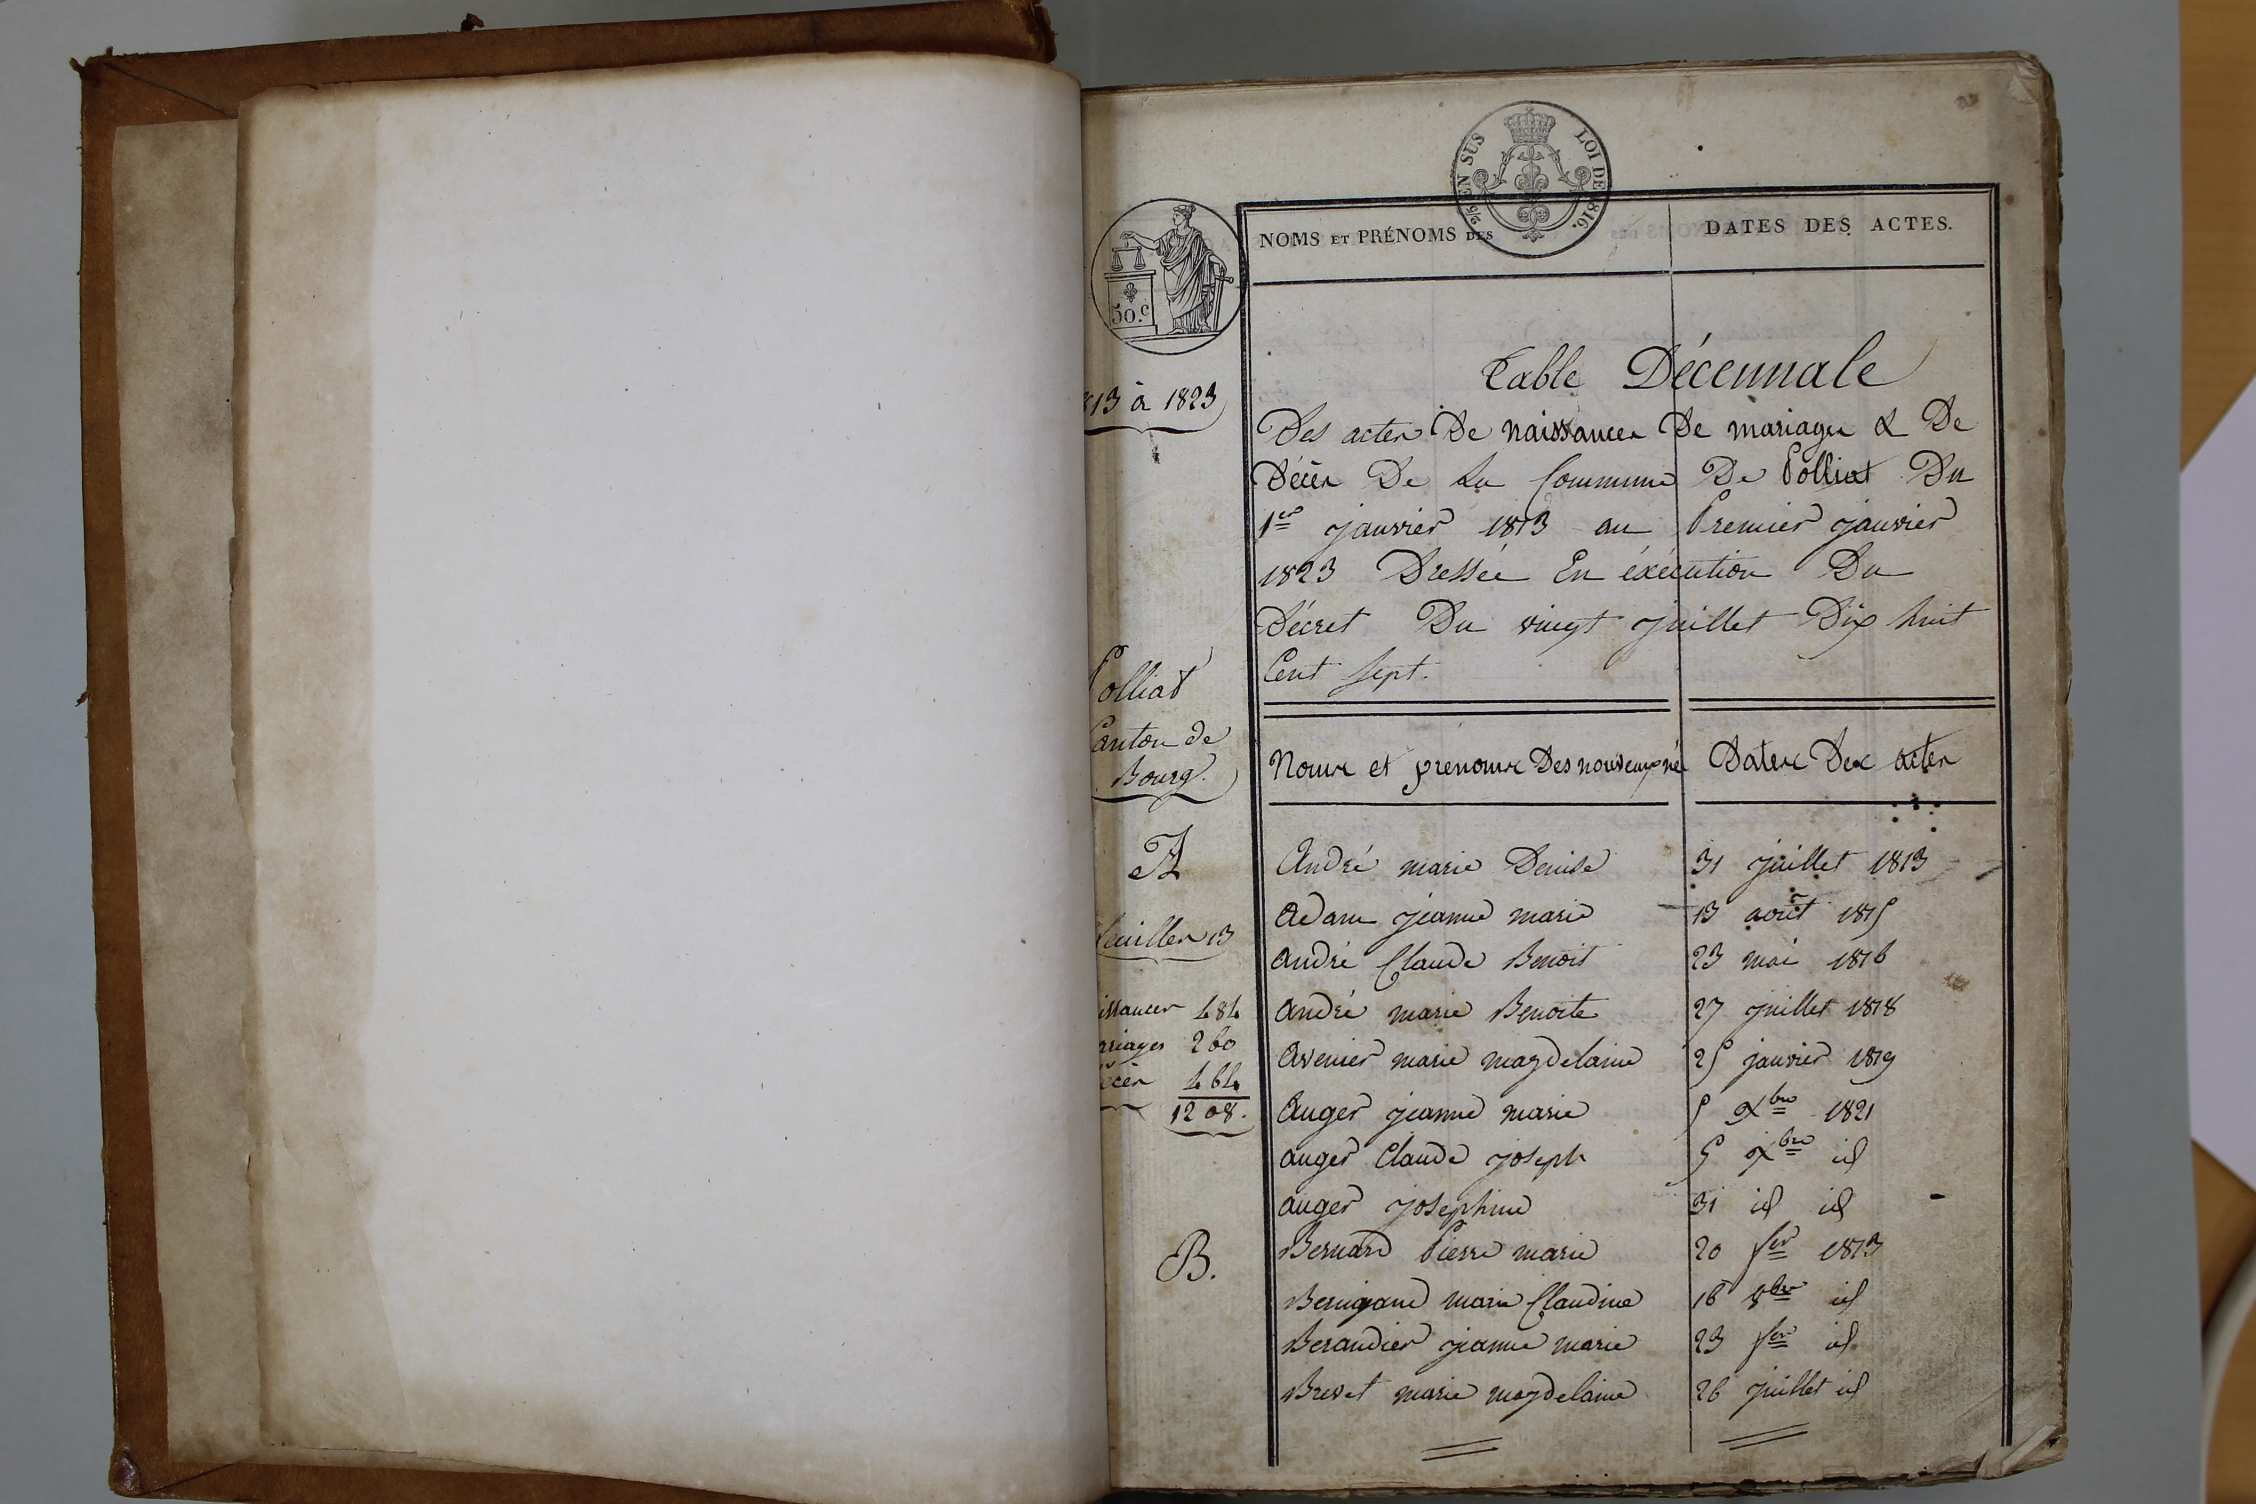 2/5 EN SUS LOI DE 1816.
50.c
NOMS ET PRÉNOMS DES
DATES DES ACTES.
13 à 1823
Table Décennale
Des actes De naissances De mariages & De
Décès De La Commune De Polliat Du
1er janvier 1813 au Premier janvier
1823 Dressée En éxécution Du
Décret Du vingt juillet Dix huit
Cent Sept.
Polliat
Canton de
Bourg.
Noms et prénoms Des nouveaux né
Dates Des actes
A
André marie Denise 31 juillet 1813
Adam jeanne marie 13 août 1815
feuilles 13
André Claude Benoit 23 mai 1816
issances 484
André marie Benoite 27 juillet 1818
ariages 260
Avenier marie magdelaine 25 janvier 1819
écès 464
1208.
Auger jeanne marie 5 Xbre 1821
auger Claude joseph 5 Xbre id
auger josephine 31 id id
B.
Bernard Pierre marie 20 fer 1813
Benigaud marie Claudine 16 8bre id
Beraudier jeanne marie 23 fer id
Brevet marie magdelaine 26 juillet id